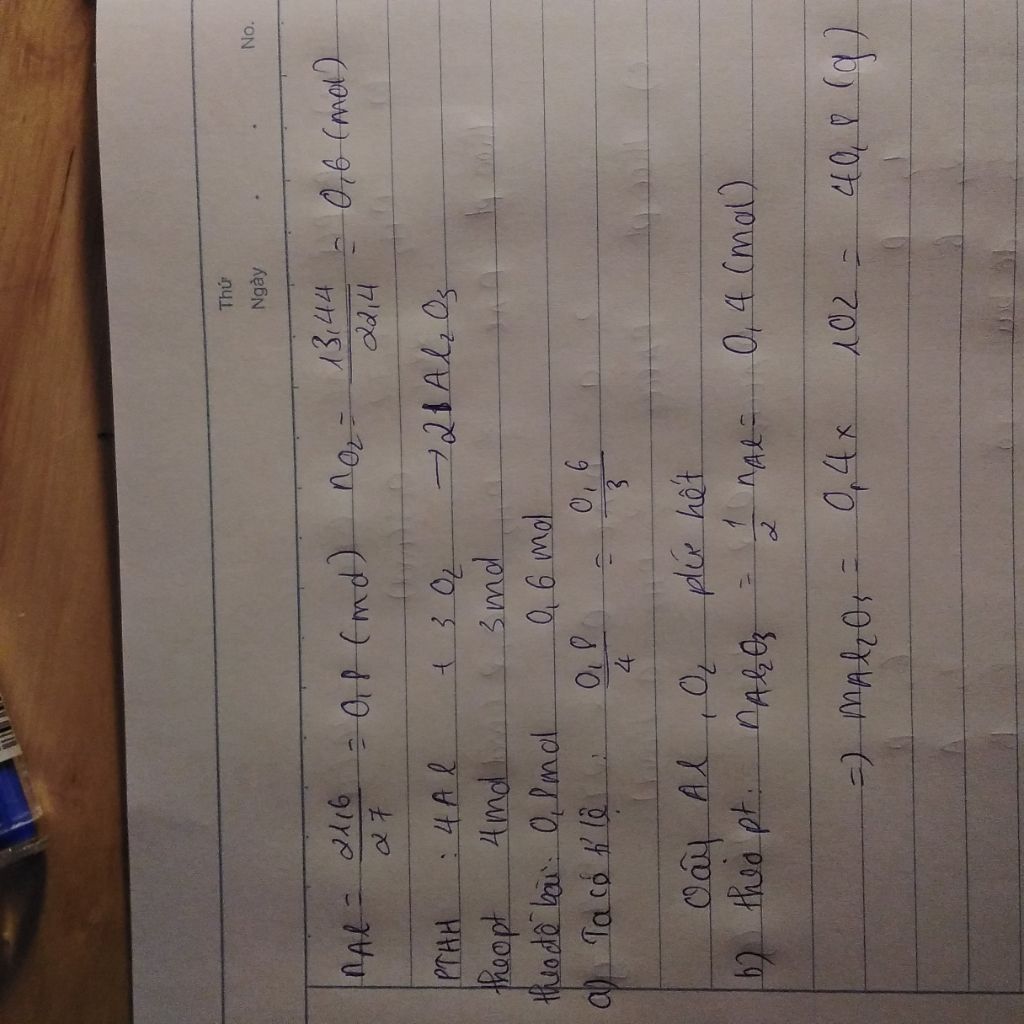 Thứ
Ngày . . No.
nAl = 21,6/27 = 0,8 (mol) nO2 = 13,44/22,4 = 0,6 (mol)
PTHH : 4Al + 3O2 → 2Al2O3
theo pt 4mol 3mol
theo đề bài: 0,8mol 0,6 mol
a) Ta có tỉ lệ : 0,8/4 = 0,6/3
Vậy Al , O2 pứ hết
b) theo pt. nAl2O3 = 1/2 nAl = 0,4 (mol)
=) mAl2O3 = 0,4 x 102 = 40,8 (g)